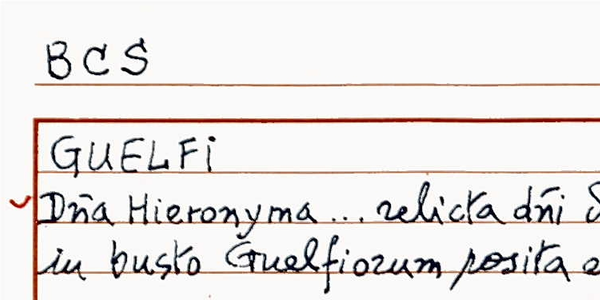 BCS
GUELFi
Dña Hieronyma ... relicta dñi
in busto Guelfiorum posita